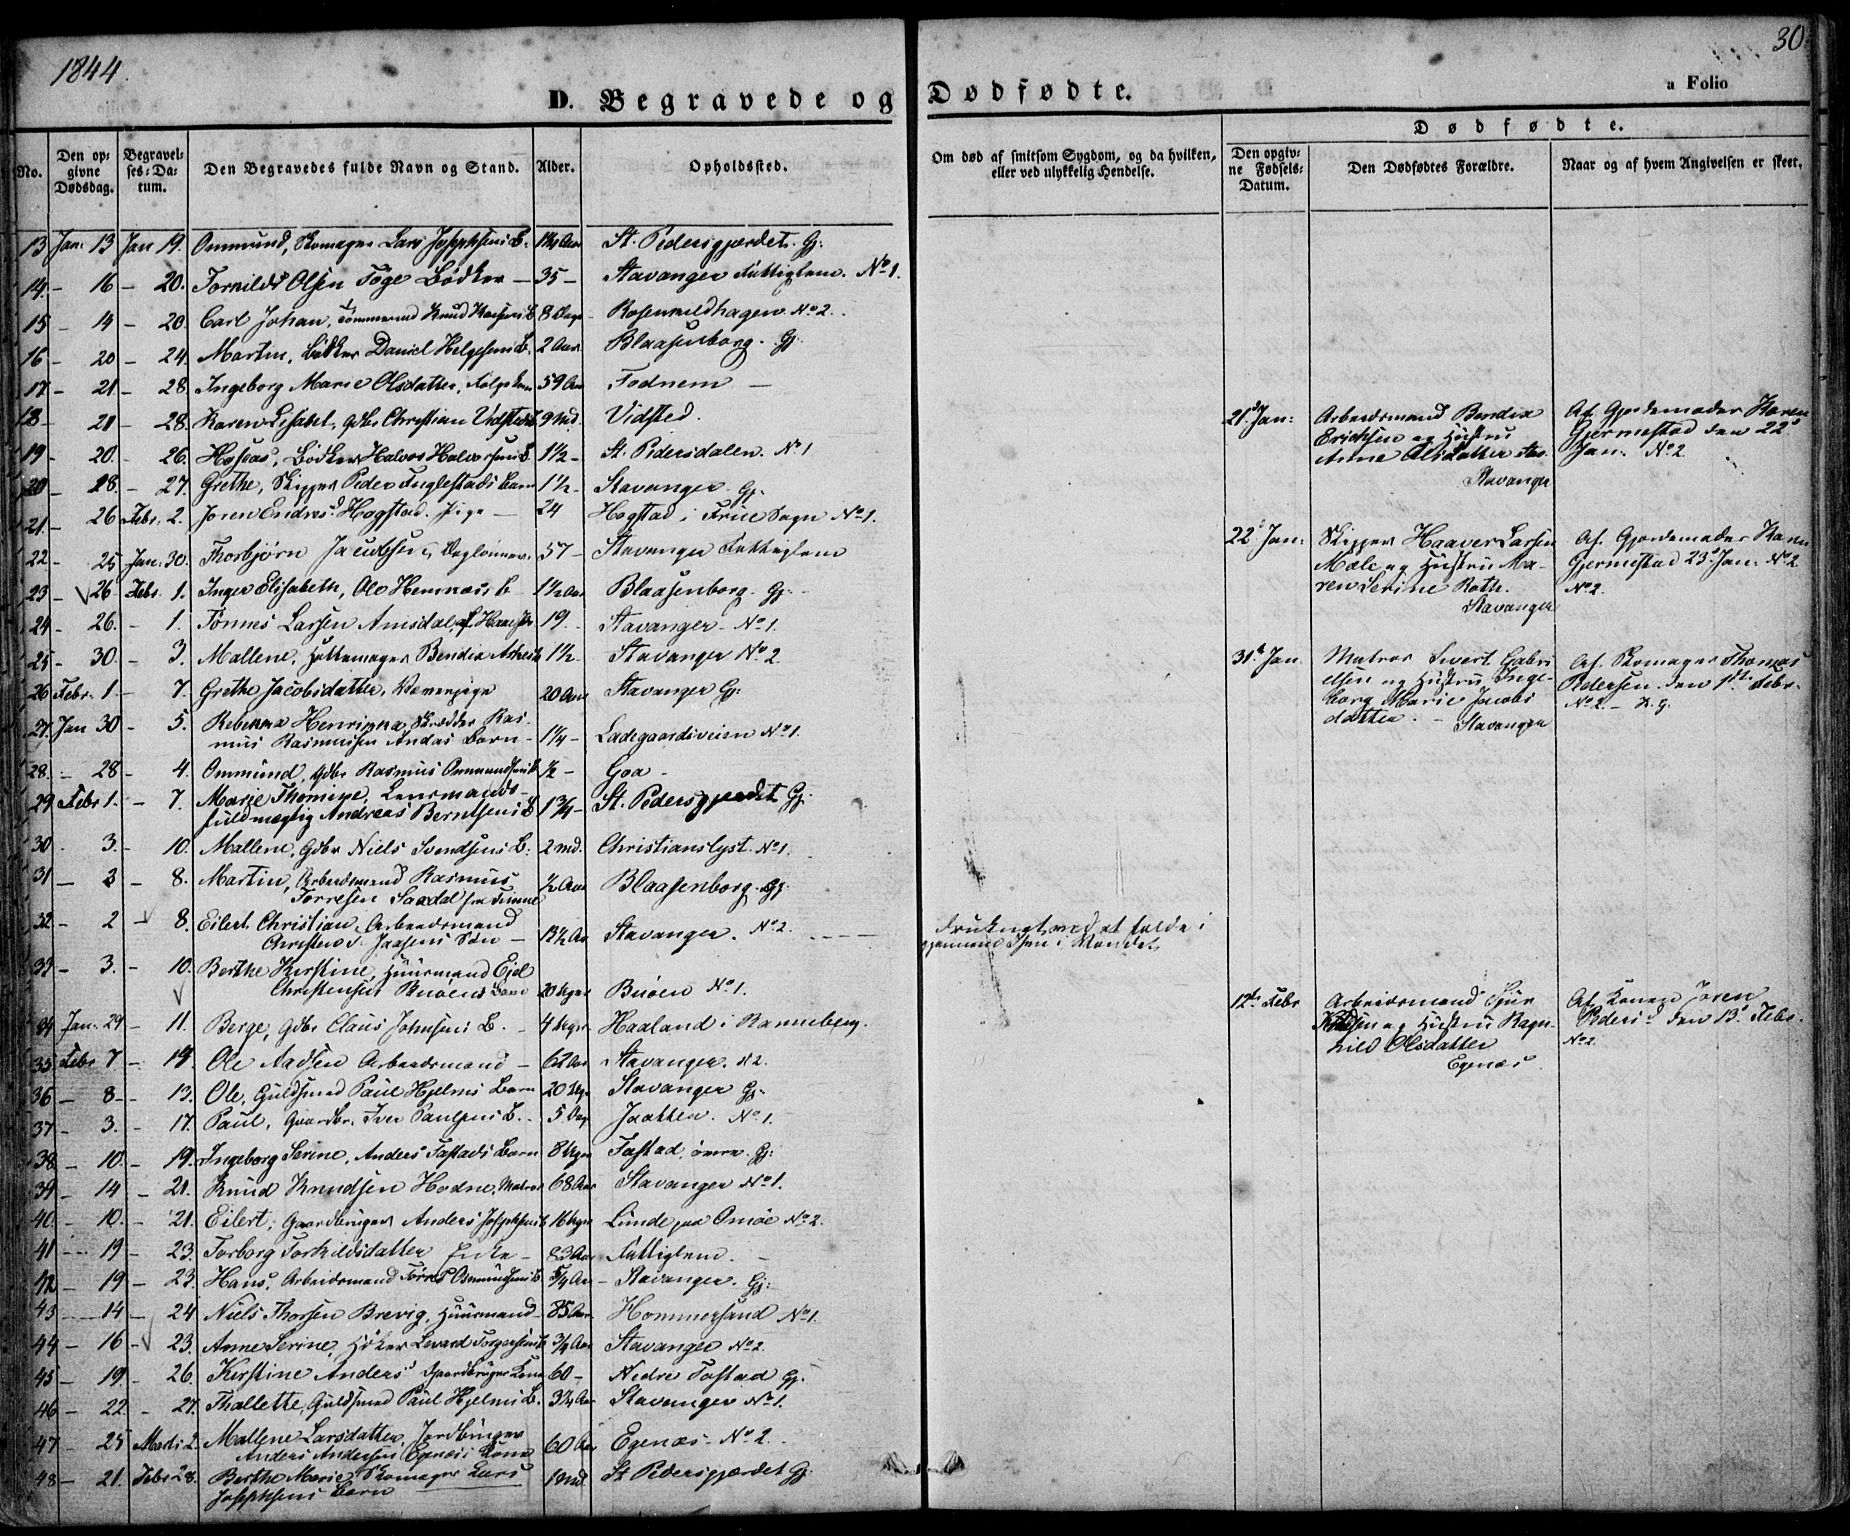 1844.
30
D. Begravede og Dødfødte.
a Folio
No.
Den opgivne Dødsdag.
Begravelses-Datum.
Den Begravedes fulde Navn og Stand.
Alder.
Opholdssted.
Om død af smitsom Sygdom, og da hvilken, eller ved ulykkelig Hendelse.
Dødfødte.
Den opgivne Fødsels-Datum.
Den Dødfødtes Forældre.
Naar og af hvem Angivelsen er skeet.
13 Jan. 13 Jan 19. Ommund, Skomager Lars Josephsens B. St. Pedersgjerdet. Gj.
14. – 16 – 20. Torkild Olsen Føge Bødker – 35 – Stavanger Fattiglem. No 1.
15 – 14 – 20. Carl Johan, Tømmermd Knud B. 8 Dage Rosenkildhagen No 2.
16 – 20 – 24. Martin, Daniel Helgesens B. 2 Aar. Blaasenborg. Gj.
17 – 21 – 28. Ingeborg Marie Olsdatter, 59 Aar Fodnem –
18 – 21 – 28. Karen Lisabet, Gdbr Christian Vidsteds 9 Md. Vidsted.
19 – 20. – 26. Hosias, Bødker Halvor Halvorsens B. 1 1/2 – St. Pedersdalen. No 1
20 – 18. – 27. Grethe, Skipper Peder Fuglestads Barn 1 1/2 – Stavanger. Gj.
21. – 26 Febr. 2. Joren Endresd. Hogstad. Pige – 24 Hogstad i Frue Sogn No 1.
22 – 25 Jan. 30. Thorbjørn Jacobsen, Daglønner. 57 – Stavanger Fattiglem
23 – 26 Febr. 1. Inger Elisabeth, Ole Hemnæs's b – 1 1/2 Aar Blaasenborg. Gj.
24 – 26. – 1. Tønnes Larsen Amsdal, 19. Stavanger – No 1.
25 – 30. – 3. Mallene, Hattemager Bendix 1 1/2. Stavanger No 2.
26 Febr. 1 – 7. Grethe Jacobsdatter, 20 Aar Stavanger Gj.
27. Jan 30 – 5. Rebekka Henrikka, Skrædder Rasmus Rasmussen Andas Barn – 1 1/4 – Ladegaardsveien No 1.
28. – 28 – 4. Ommund, Gdbr Rasmus Ommundsens 1/2 – Goa –
29 Febr 1. – 7. Marie Thomine, Lensmandsfuldmægtig Andreas Berntsens B 1 3/4 – St. Pedersgjerdet Gj.
30 – 3. – 10. Mallene, Gdbr Niels Svendsens B. 2 Md. Christianslyst. No 1.
31 – 3 – 8. Martin, Arbeidsmand Rasmus Torresen 1/2 Aar Blaasenborg. Gj.
32 – 2 – 8. Eilert Christian, Arbeidsmand Søn – Stavanger. No 2.
druknet ved at falde i gjennem Isen i Vandet
33 – 3. – 10. Berthe Kirstine, Huusmand Eiel Christensen Buøens Barn 20 Uger Buøen No 1.
34 Jan. 29 – 11. Berge, Gdbr Claus Johnsens B. – 4 Uger Haaland i Ranneberg.
35 Febr 7 – 14. Ole Aadsen Arbeidsmand – 62 Aar Stavanger. No 2.
36 – 8 – 13. Ole, Guldsmed Paul Hjelms Barn 20 Uger Stavanger Gj.
37 – 3. – 17. Paul, Gaardbr. Iver Paulsens B. 5 Dag Jaatten. No 1.
38 – 10. – 19. Ingeborg Serine, Anders Tastads Barn 8 Uger Tastad, øvre. Gj.
39 – 14 – 21. Knud Knudsen Hodne, Matros 68 Aar Stavanger No 1.
40. – 10. – 21. Eilert, Gaardbruger Anders Josephsens 16 Uger Lunde paa Omøe No 2.
41 – 19 – 23. Torborg Torkildsdatter Enke – 83 Aar Fattiglem. –
42 – 19 – 23. Hans, Arbeidsmand Torres Osmundsens 5/4 Aar – Stavanger. Gj.
43 – 14 – 24 Niels Thorsen Brevig, Huusmand – 85 Aar. Hommersand No 1.
44 – 16 – 23. Anne Serine, Høker 3/4 Aar Stavanger No 2.
45 – 19. – 26. Kirstine Andersd Gaardbruger Kone 60 – Nedre Tastad Gj.
46 – 22 – 27. Thallette, Guldsmed Paul Hjelms B. Stavanger No 1.
47 – 25 Marts 2. Mallene Larsdatter, Jordbruger Anders Andersen Egenæs's Kone 60 Aar Egenæs – No 2
48 – 21. Febr 28. Berthe Marie, Skomager Lars Josephsens Barn 1 Md. St. Pedersgjærdet Gj.
21d Jan: Arbeidsmand Bendix Erichsen og Hustru Anne Olsdatter Stavanger
Af Gjordemoder Karen Gjermestad den 22d Jan. No 2
22d Jan: Skipper Haaver Larsen Mæle og Hustru Maren Serine Roth. Stavanger
Af Gjordemoder Karen Gjermestad 23d Jan. No 2 No 2.
31te Jan Matros Sivert Gabrielsen og Hustru Ingeborg Marie Jacobsdatter. – Stavanger
Af Skomager Thomas Pedersen den 1ste Febr. No 2 –
12te Febr Arbeidsmand og Hustru Ragnhild Olsdatter Egenæs.
Af Konen Joren Pedersd den 13d Febr. No 2.